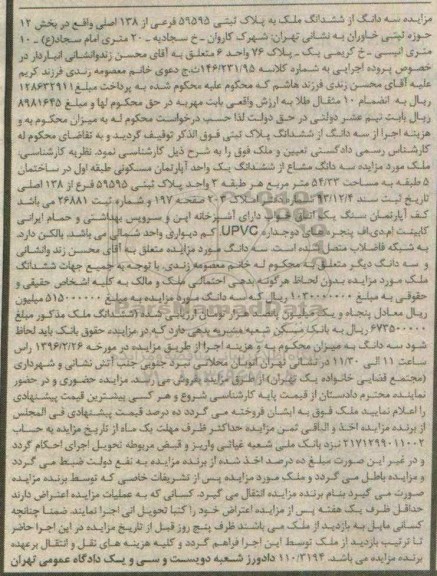 مزایده سه دانگ از ششدانگ ملک به پلاک ثبتی ۵۹۵۹۵ فرعی از ۱۳۸ اصلی واقع در بخش ۱۲
حوزه ثبتی خاوران به نشانی تهران: شهرک کاروان _ خ سجادیه _ ۲۰ متری امام سجاد(ع) _ ۱۰
متری انیسی _ خ کریمی یک _ پلاک ۷۶ واحد ۶ متعلق به آقای محسن زندوانشانی انباردار در
خصوص پرونده اجرایی به شماره کلاسه ۱۴۶/۲۳۱/۹۵ ج دعوی خانم معصومه زندی فرزند کریم
علیه آقای محسن زندی فرزند هاشم که محکوم علیه محکوم شده به پرداخت مبلغ ۱۲۸۶۳۲۹۱۱
ریال به انضمام ۱۰ مثقال طلا به ارزش واقعی بابت مهریه در حق محکوم لها و مبلغ ۸۹۸۱۶۴۵
ریال بابت نیم عشر دولتی در حق دولت لذا حسب درخواست محکوم له به میزان محکوم به و
هزینه اجرا از سه دانگ از ششدانگ پلاک ثبتی فوق الذکر توقیف گردید و به تقاضای محکوم له
کارشناس رسمی دادگستری تعیین و ملک فوق را به شرح ذیل کارشناسی نمود. نظریه کارشناسی:
ملک مورد مزایده سه دانگ مشاع از ششدانگ یک واحد آپارتمان مسکونی طبقه اول در ساختمان
۵ طبقه به مساحت ۵۴/۳۳ متر مربع هر طبقه ۳ واحد پلاک ثبتی ۵۹۵۹۵ فرع از ۱۳۸ اصلی
تاریخ ثبت سند ۹۳/۱۲/۴ املاک ۲۰۴ صفحه ۱۹۷ و شماره ثبت ۲۶۸۸۱ می باشد
کف آپارتمان سنگ یک اتاق خواب دارای آشپزخانه اپن و سرویس بهداشتی و حمام ایرانی
کابینت ام.دی.اف پنجره های دوجداره UPVC کم دیواری واحد شمالی می باشد. بالکن دارد.
به شبکه فاضلاب متصل شده است. سه دانگ مورد مزایده متعلق به آقای محسن زند وانشانی
و سه دانگ دیگر متعلق به محکوم له خانم معصومه زندی. با توجه به جمیع جهات ششدانگ
ملک مورد مزایده بدون لحاظ هرگونه بدهی احتمالی ملک و مالک به کلیه اشخاص حقیقی و
حقوقی به مبلغ ۱۰۳۰۰۰۰۰۰۰ ریال که سه دانگ مورد مزایده به مبلغ ۵۱۵۰۰۰۰۰۰ میلیون
ریال معادل پنجاه و یک میلیون و پانصد هزار تومان ششدانگ ملک مذکور مبلغ
۶۷۳۵۰۰۰۰۰ ریال به بانک مسکن شعبه منیریه بدهی دارد که در مزایده حقوق بانک باید لحاظ
شود سه دانگ به میزان محکوم به و هزینه اجرا از طریق مزایده در مورخه ۱۳۹۶/۲/۲۶ راس
ساعت ۱۱ الی ۱۱/۳۰ در نشانی تهران اتوبان محلاتی نبرد جنوبی جنب آتش نشانی و شهرداری
(مجتمع قضایی خانواده یک تهران) از طریق مزایده بفروش می رسد. مزایده حضوری و در حضور
نماینده محترم دادستان از قیمت پایه کارشناسی شروع و هر کسی بیشترین قیمت پیشنهادی
را اعلام نماید ملک فوق به ایشان فروخته می گردد ده درصد قیمت پیشنهادی فی المجلس
از برنده مزایده اخذ و الباقی ثمن مزایده حداکثر ظرف مهلت یک ماه از تاریخ مزایده به حساب
۲۱۷۱۲۹۹۰۱۱۰۰۲ نزد بانک ملی شعبه غیاثی واریز و قبض مربوطه تحویل اجرای احکام گردد
و در غیر این صورت مبلغ ده درصد اخذ شده از برنده مزایده به نفع دولت ضبط می گردد
و مزایده باطل می گردد و ملک مورد مزایده پس از تشریفات خاصی که توسط برنده مزایده
صورت می گیرد بنام برنده مزایده انتقال می گیرد. کسانی که به عملیات مزایده اعتراض دارند
حداقل ظرف یک هفته پس از مزایده اعتراض خود را کتبا تحویل این اجرا نمایند. ضمنا چنانچه
کسانی مایل به بازدید از ملک می باشند ظرف پنج روز قبل از تاریخ مزایده در این اجرا حاضر
تا ترتیب بازدید از ملک توسط این اجرا فراهم گردد و کلیه هزینه های نقل و انتقال برعهده
برنده مزایده می باشد. ۱۱۰/۳۱۹۴ دادورز شعبه دویست و سی و یک دادگاه عمومی تهران